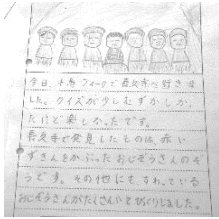 今日、木馬ウォークで喜久寺へ行きま
した。クイズが少しむずかしか
たけど楽しかったです。
喜久寺で発見したものは、赤い
ずきんをかぶったおじぞうさんのぞ
うです。その他にもすわっている
おじぞうさんがたくさんいてびっくりしました。